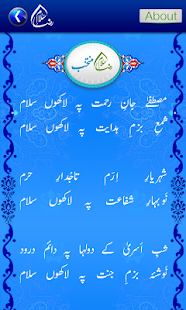 سلام رضا
About
منتخب
سلام رضا
مصطفےٰ جانِ رحمت پہ لاکھوں سلام
شمعِ بزمِ ہدایت پہ لاکھوں سلام
شہریارِ اِرَم تاجدارِ حرم
نوبہارِ شفاعت پہ لاکھوں سلام
شبِ اَسریٰ کے دولہا پہ دائم درود
نوشۂ بزمِ جنت پہ لاکھوں سلام